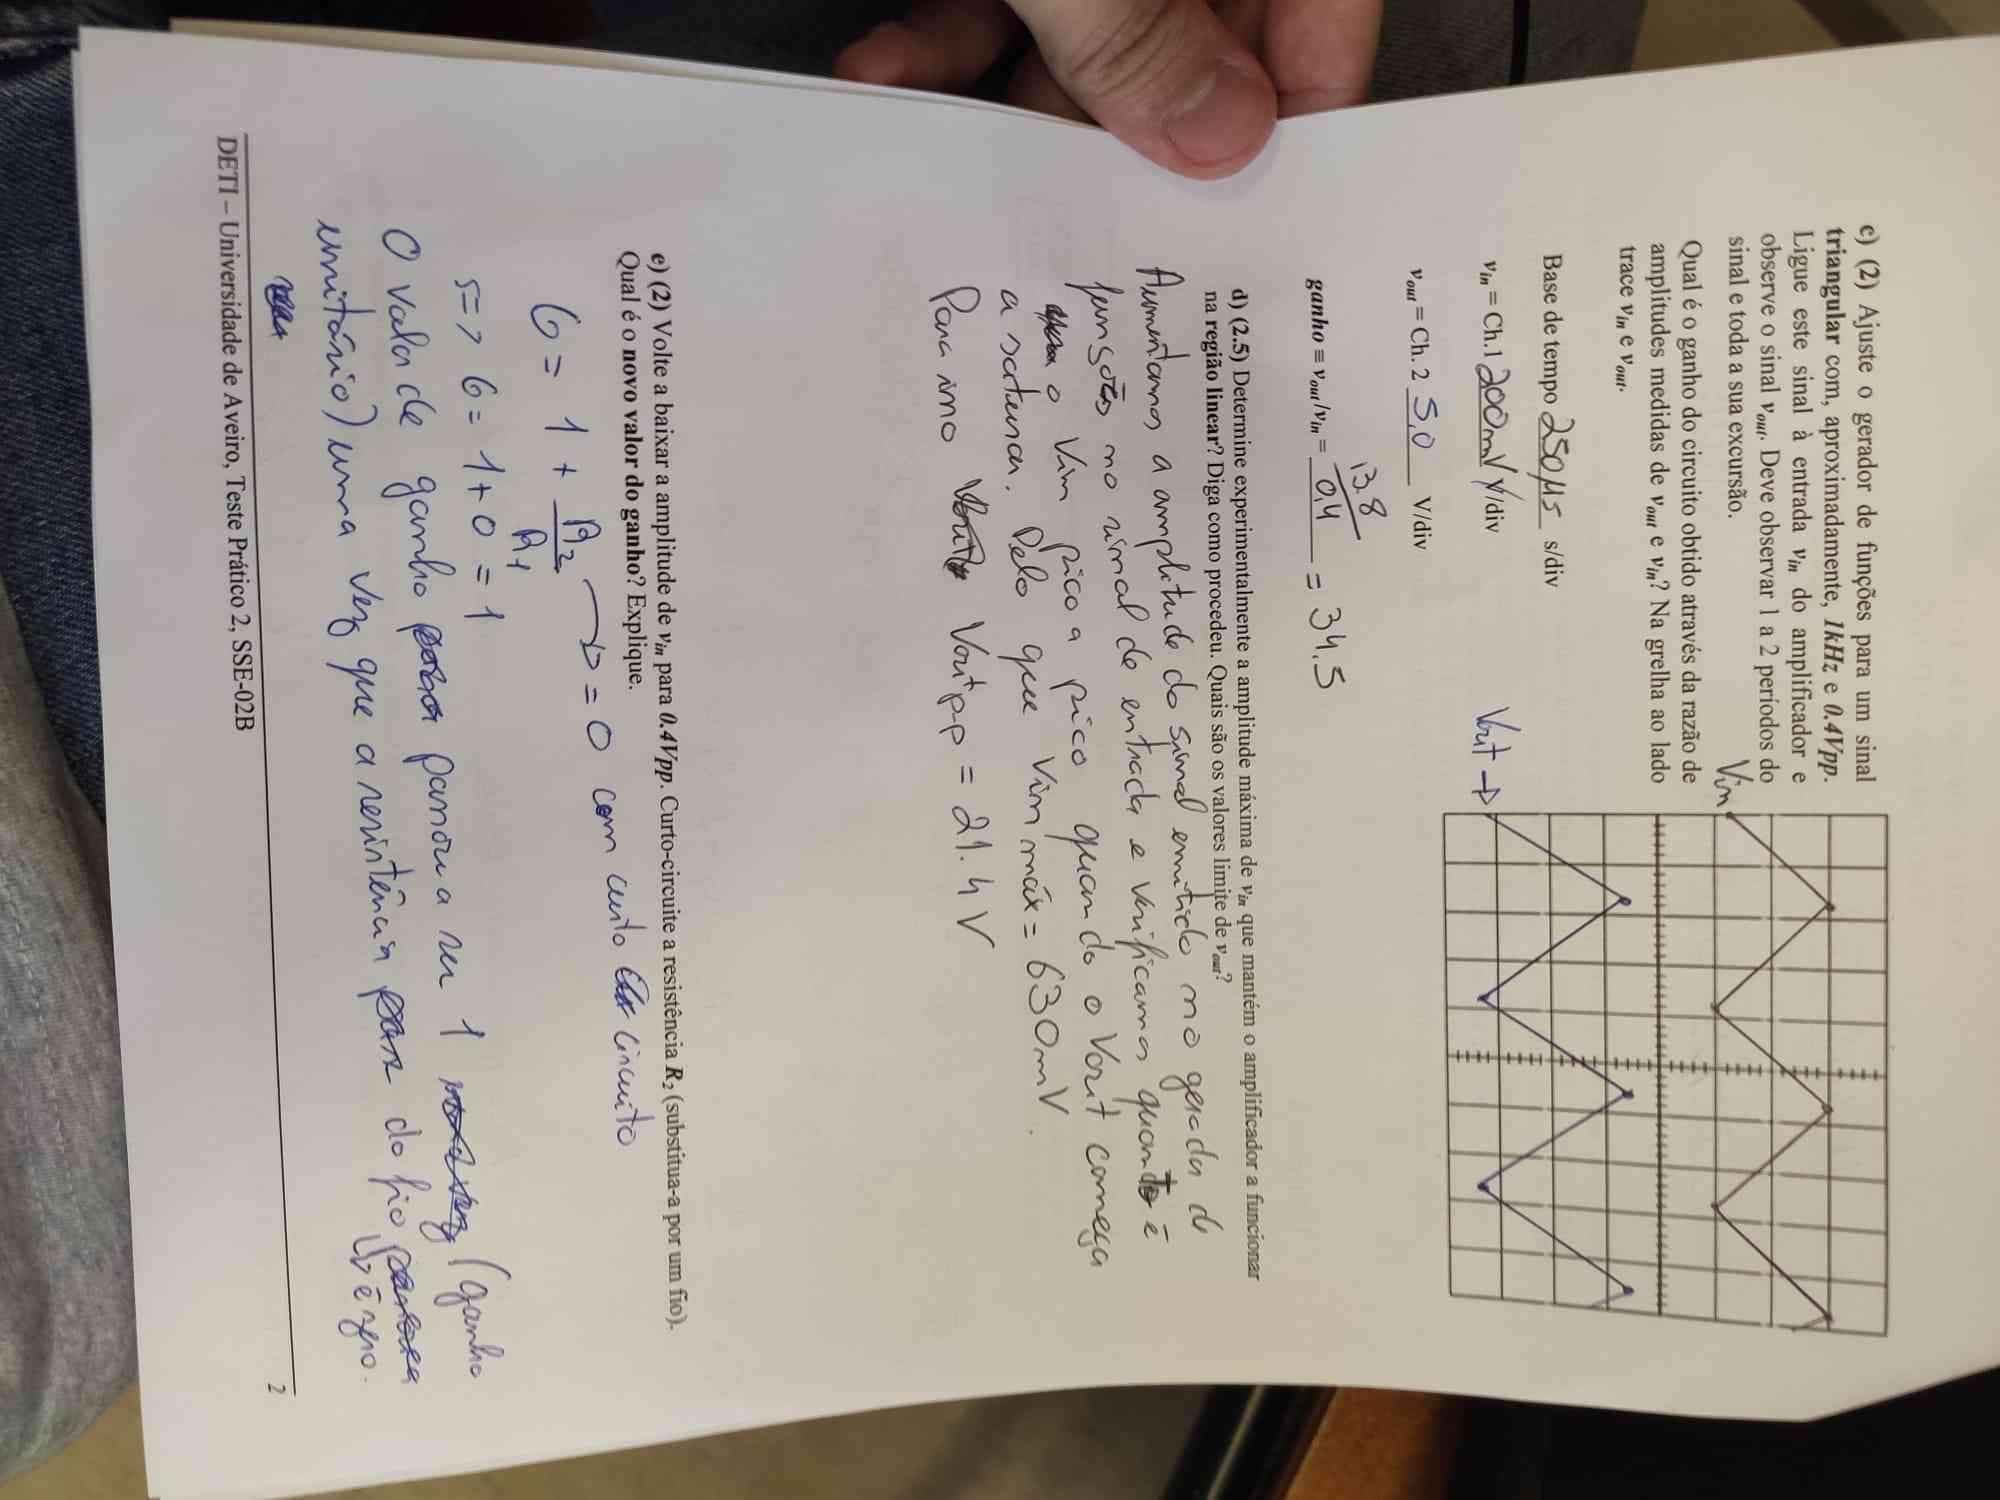 c) (2) Ajuste o gerador de funções para um sinal
triangular com, aproximadamente, 1kHz e 0.4Vpp.
Ligue este sinal à entrada vin do amplificador e
observe o sinal vout. Deve observar 1 a 2 períodos do
sinal e toda a sua excursão.
Vin
Qual é o ganho do circuito obtido através da razão de
amplitudes medidas de vout e vin? Na grelha ao lado
trace vin e vout.
Base de tempo 250µs s/div
vin = Ch.1 200mV V/div
Vout →
vout = Ch. 2 5,0 V/div
ganho ≡ vout/vin = 13.8/0,4 = 34.5
d) (2.5) Determine experimentalmente a amplitude máxima de vin que mantém o amplificador a funcionar
na região linear? Diga como procedeu. Quais são os valores limite de vout?
Aumentamos a amplitude do sinal emitido no gerador de
funções no sinal de entrada e verificamos quanto é
o Vin pico a pico quando o Vout começa
a saturar. Pelo que Vin máx = 630mV.
Para isso Vout p-p = 21.4 V
e) (2) Volte a baixar a amplitude de vin para 0.4Vpp. Curto-circuite a resistência R2 (substitua-a por um fio).
Qual é o novo valor do ganho? Explique.
G = 1 + R2/R1 → = 0 com curto circuito
=> G = 1+0 = 1
O valor de ganho passou a ser 1 (ganho
unitário) uma vez que a resistência do fio
↳ é zero.
2
DETI – Universidade de Aveiro, Teste Prático 2, SSE-02B